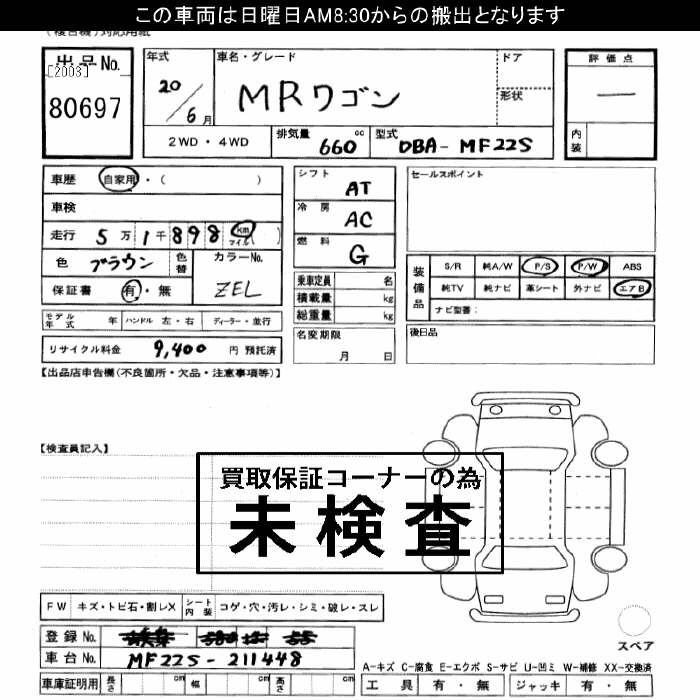 この車両は日曜日AM8:30からの搬出となります
(複合機)対応用紙
出品No.
[2003]
80697
年式
20/6月
車名・グレード
MRワゴン
ドア
形状
評価点
—
内装
2WD・4WD
排気量 660 cc
型式 DBA-MF22S
車歴 自家用・( )
車検
走行 5万1千898 km マイル( )
色 ブラウン 色替
カラーNo. ZEL
保証書 有・無
モデル年式 年 ハンドル 左・右 ディーラー・並行
リサイクル料金 9,400 円 預託済
シフト AT
冷房 AC
燃料 G
乗車定員 名
積載量 kg
総重量 kg
名変期限
月 日
セールスポイント
装備品
S/R 純A/W P/S P/W ABS
純TV 純ナビ 革シート 外ナビ エアB
ナビ型番:
後日品
【出品店申告欄(不良箇所・欠品・注意事項等)】
【検査員記入】
買取保証コーナーの為
未検査
FW キズ・トビ石・割レX シート内装 コゲ・穴・汚レ・シミ・破レ・スレ
登録No.
車台No. MF22S-211448
車庫証明用 長さ cm 幅 cm 高さ cm
スペア
A-キズ C-腐食 E-エクボ S-サビ U-凹ミ W-補修 XX-交換済
工具 有・無 ジャッキ 有・無